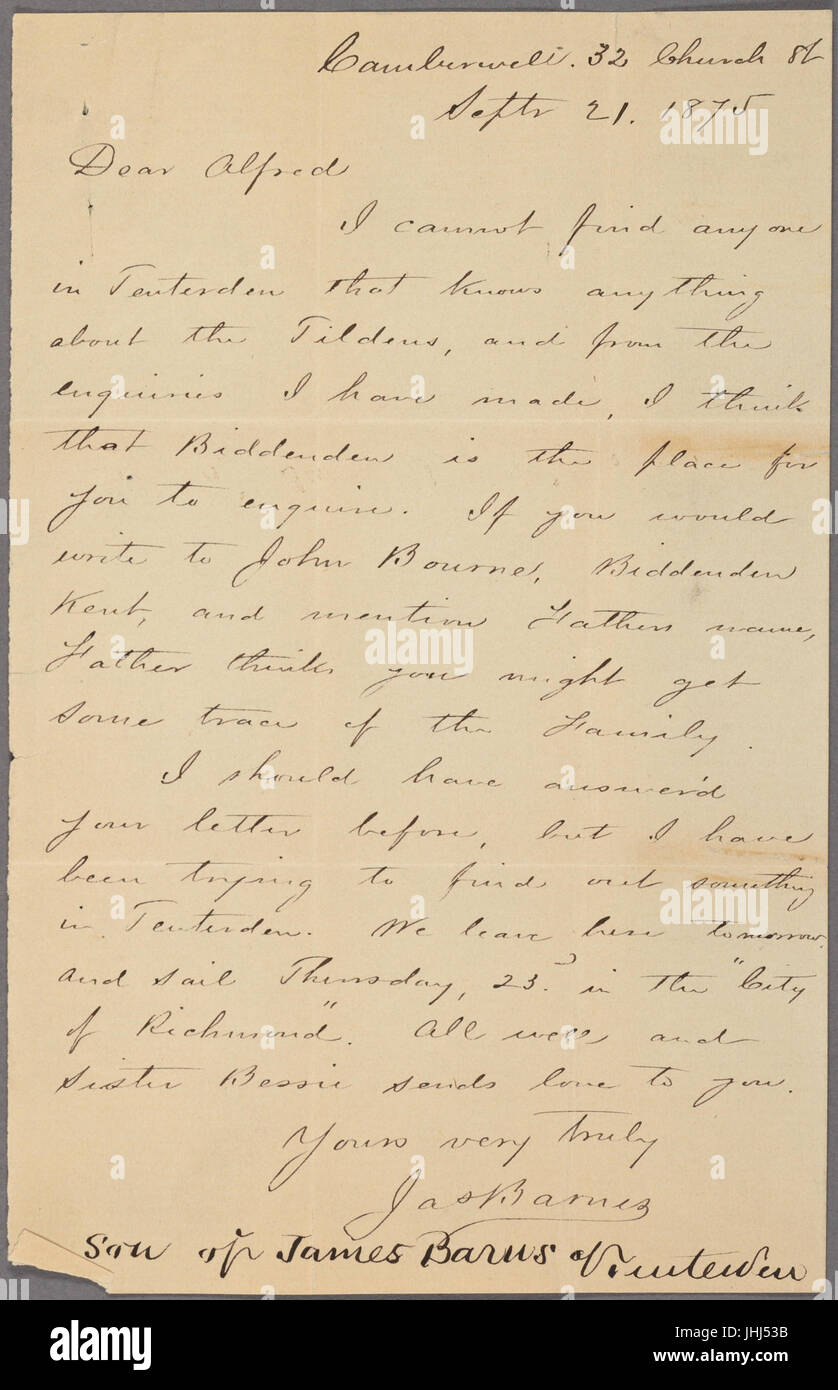 Camberwell. 32 Church St
Septr 21. 1875
Dear Alfred
I cannot find anyone
in Tenterden that knows anything
about the Tildens, and from the
enquiries I have made, I think
that Biddenden is the place for
you to enquire. If you would
write to John Bourne, Biddenden
Kent, and mention Fathers name,
Father thinks you might get
some trace of the Family.
I should have answer'd
your letter before, but I have
been trying to find out something
in Tenterden. We leave here tomorrow.
and sail Thursday, 23d. in the "City
of Richmond". All well and
Sister Bessie sends love to you.
Yours very truly
Jas Barnes
Son of James Barns of Tenterden
alamy
alamy stock photo
JHJ53B
www.alamy.com